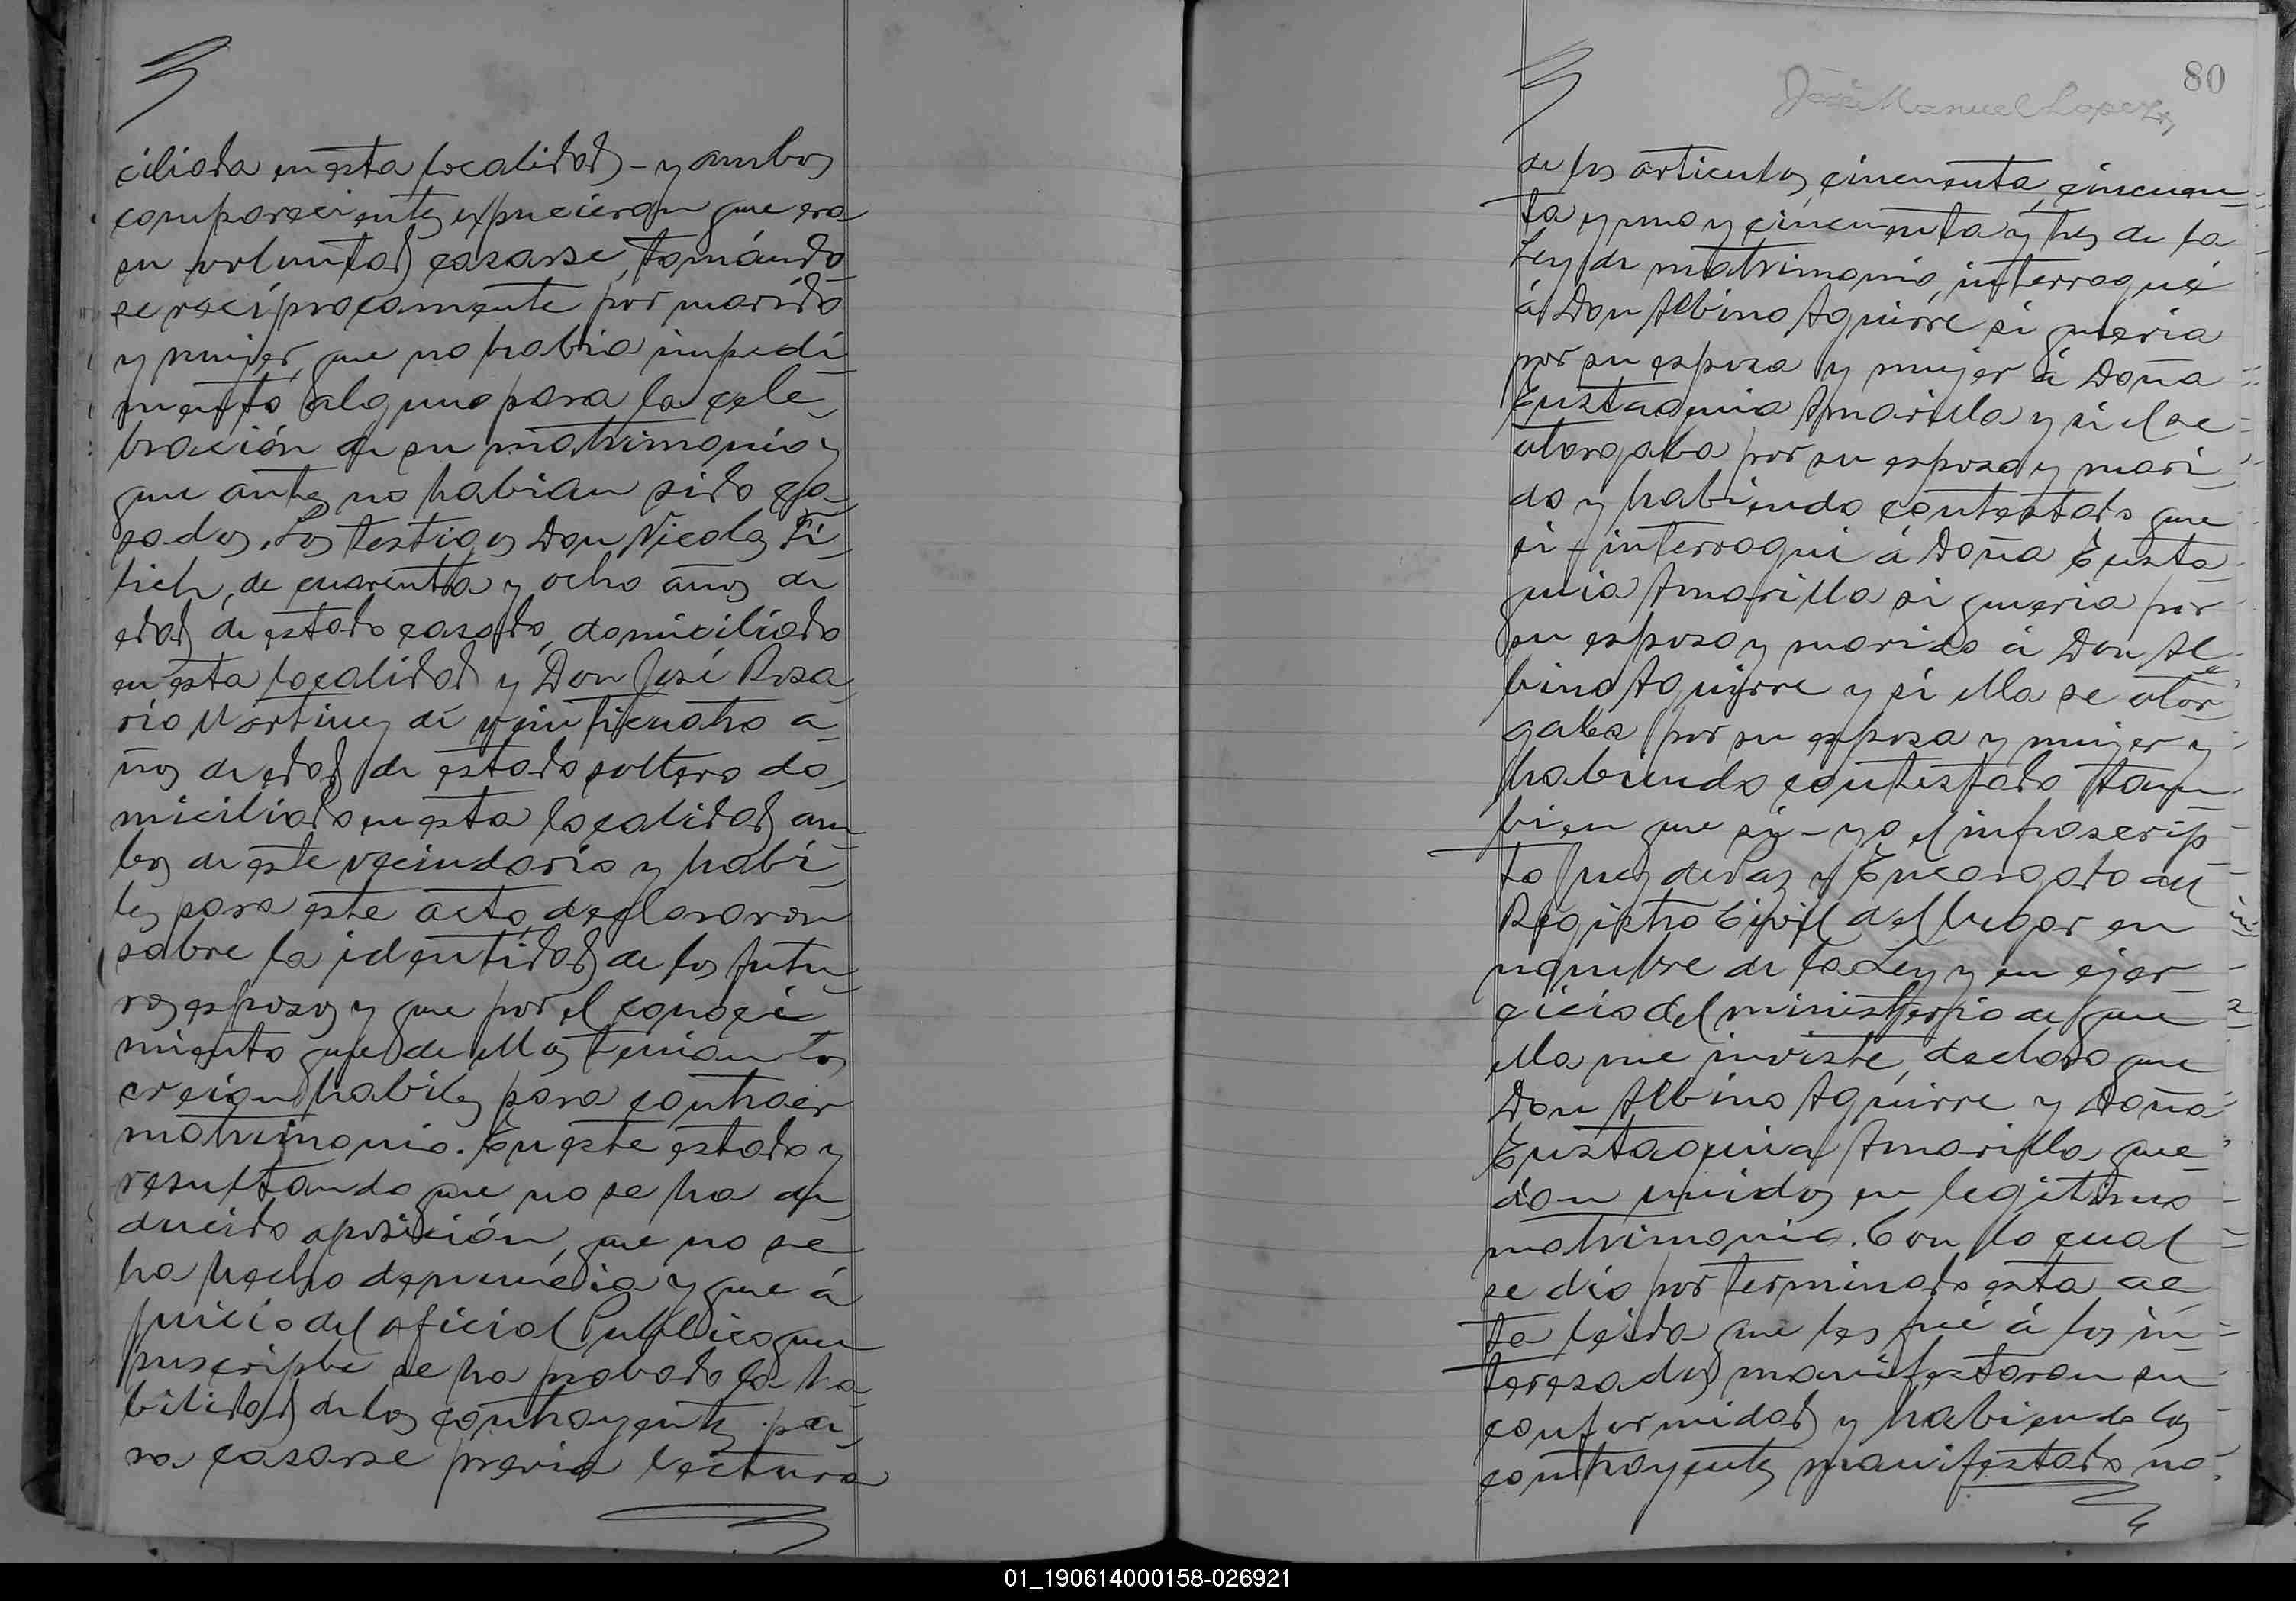 ciliada en esta localidad - y ambos
comparecientes expucieron que era
su voluntad casarse, tomándo
se reciprocamente por marido
y mujer, que no habia impedi
mento alguno para la cele
bración de su matrimonio y
que antes no habian sido ca
sados. Los testigos Don Nicolas Fi
lich, de cuarenta y ocho años de
edad de estado casado, domiciliado
en esta localidad y Don José Rosa
rio Martinez de veinticuatro a
ños de edad de estado soltero do
miciliado en esta localidad am
bos de este vecindario y habi
les para este acto, declararon
sobre la identidad de los futu
ros esposos y que por el conoci
miento que de ellos tenian los
creian habiles para contraer
matrimonio. En este estado y
resultando que no se ha de
ducido oposición, que no se
ha hecho denuncia y que á
juicio del oficial Publico que
suscribe se ha probado la ha
bilidad de los contrayentes pa
ra casarse previa lectura
80
José Manuel Lopez
de los articulos cincuenta, cincuen
ta y uno y cincuenta y tres de la
Ley de matrimonio, interrogué
á Don Albino Aguirre si queria
por su esposa y mujer á Doña
Eustaquia Amarilla y si el se
otorgaba por su esposo y mari
do y habiendo contestado que
si - interrogué á Doña Eusta
quia Amarilla si queria por
su esposo y marido á Don Al
bino Aguirre y si ella se otor
gaba por su esposa y mujer y
habiendo contestado tam
bien que si - yo el infrascrip
to Juez de Paz y Encargado del
Registro Civil del lugar en
nombre de la Ley y en ejer
cicio del ministerio de que
ella me inviste, declaro que
Don Albino Aguirre y Doña
Eustaquia Amarilla que
dan unidos en legitimo
matrimonio. Con lo cual
se dio por terminado esta ac
ta leida que les fué á los in
teresados manifestaron su
conformidad y habiendo los
contrayentes manifestado no
01_190614000158-026921